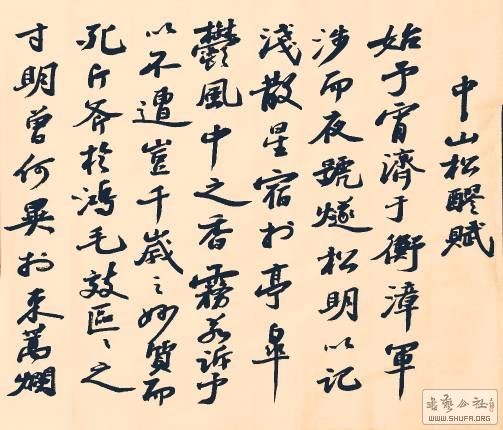 中山松醪賦
始予宵濟于衡漳軍
涉而夜號燧松明以記
淺散星宿於亭皋
鬱風中之香霧若訴予
以不遭豈千歲之妙質而
死斤斧於鴻毛效區〻之
寸明曾何異於束蒿爛
書藝公社
WWW.SHUFA.ORG